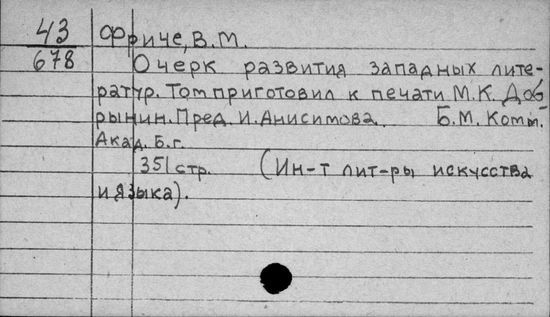 43 Фриче, В.М.
678 Очерк развития западных лите-
ратур. Том приготовил к печати М.К. Доб
рынин. Пред. И. Анисимова. Б.М. Комм.
Акад. Б.г.
351 стр. (Ин-т лит-ры искусства
и языка).